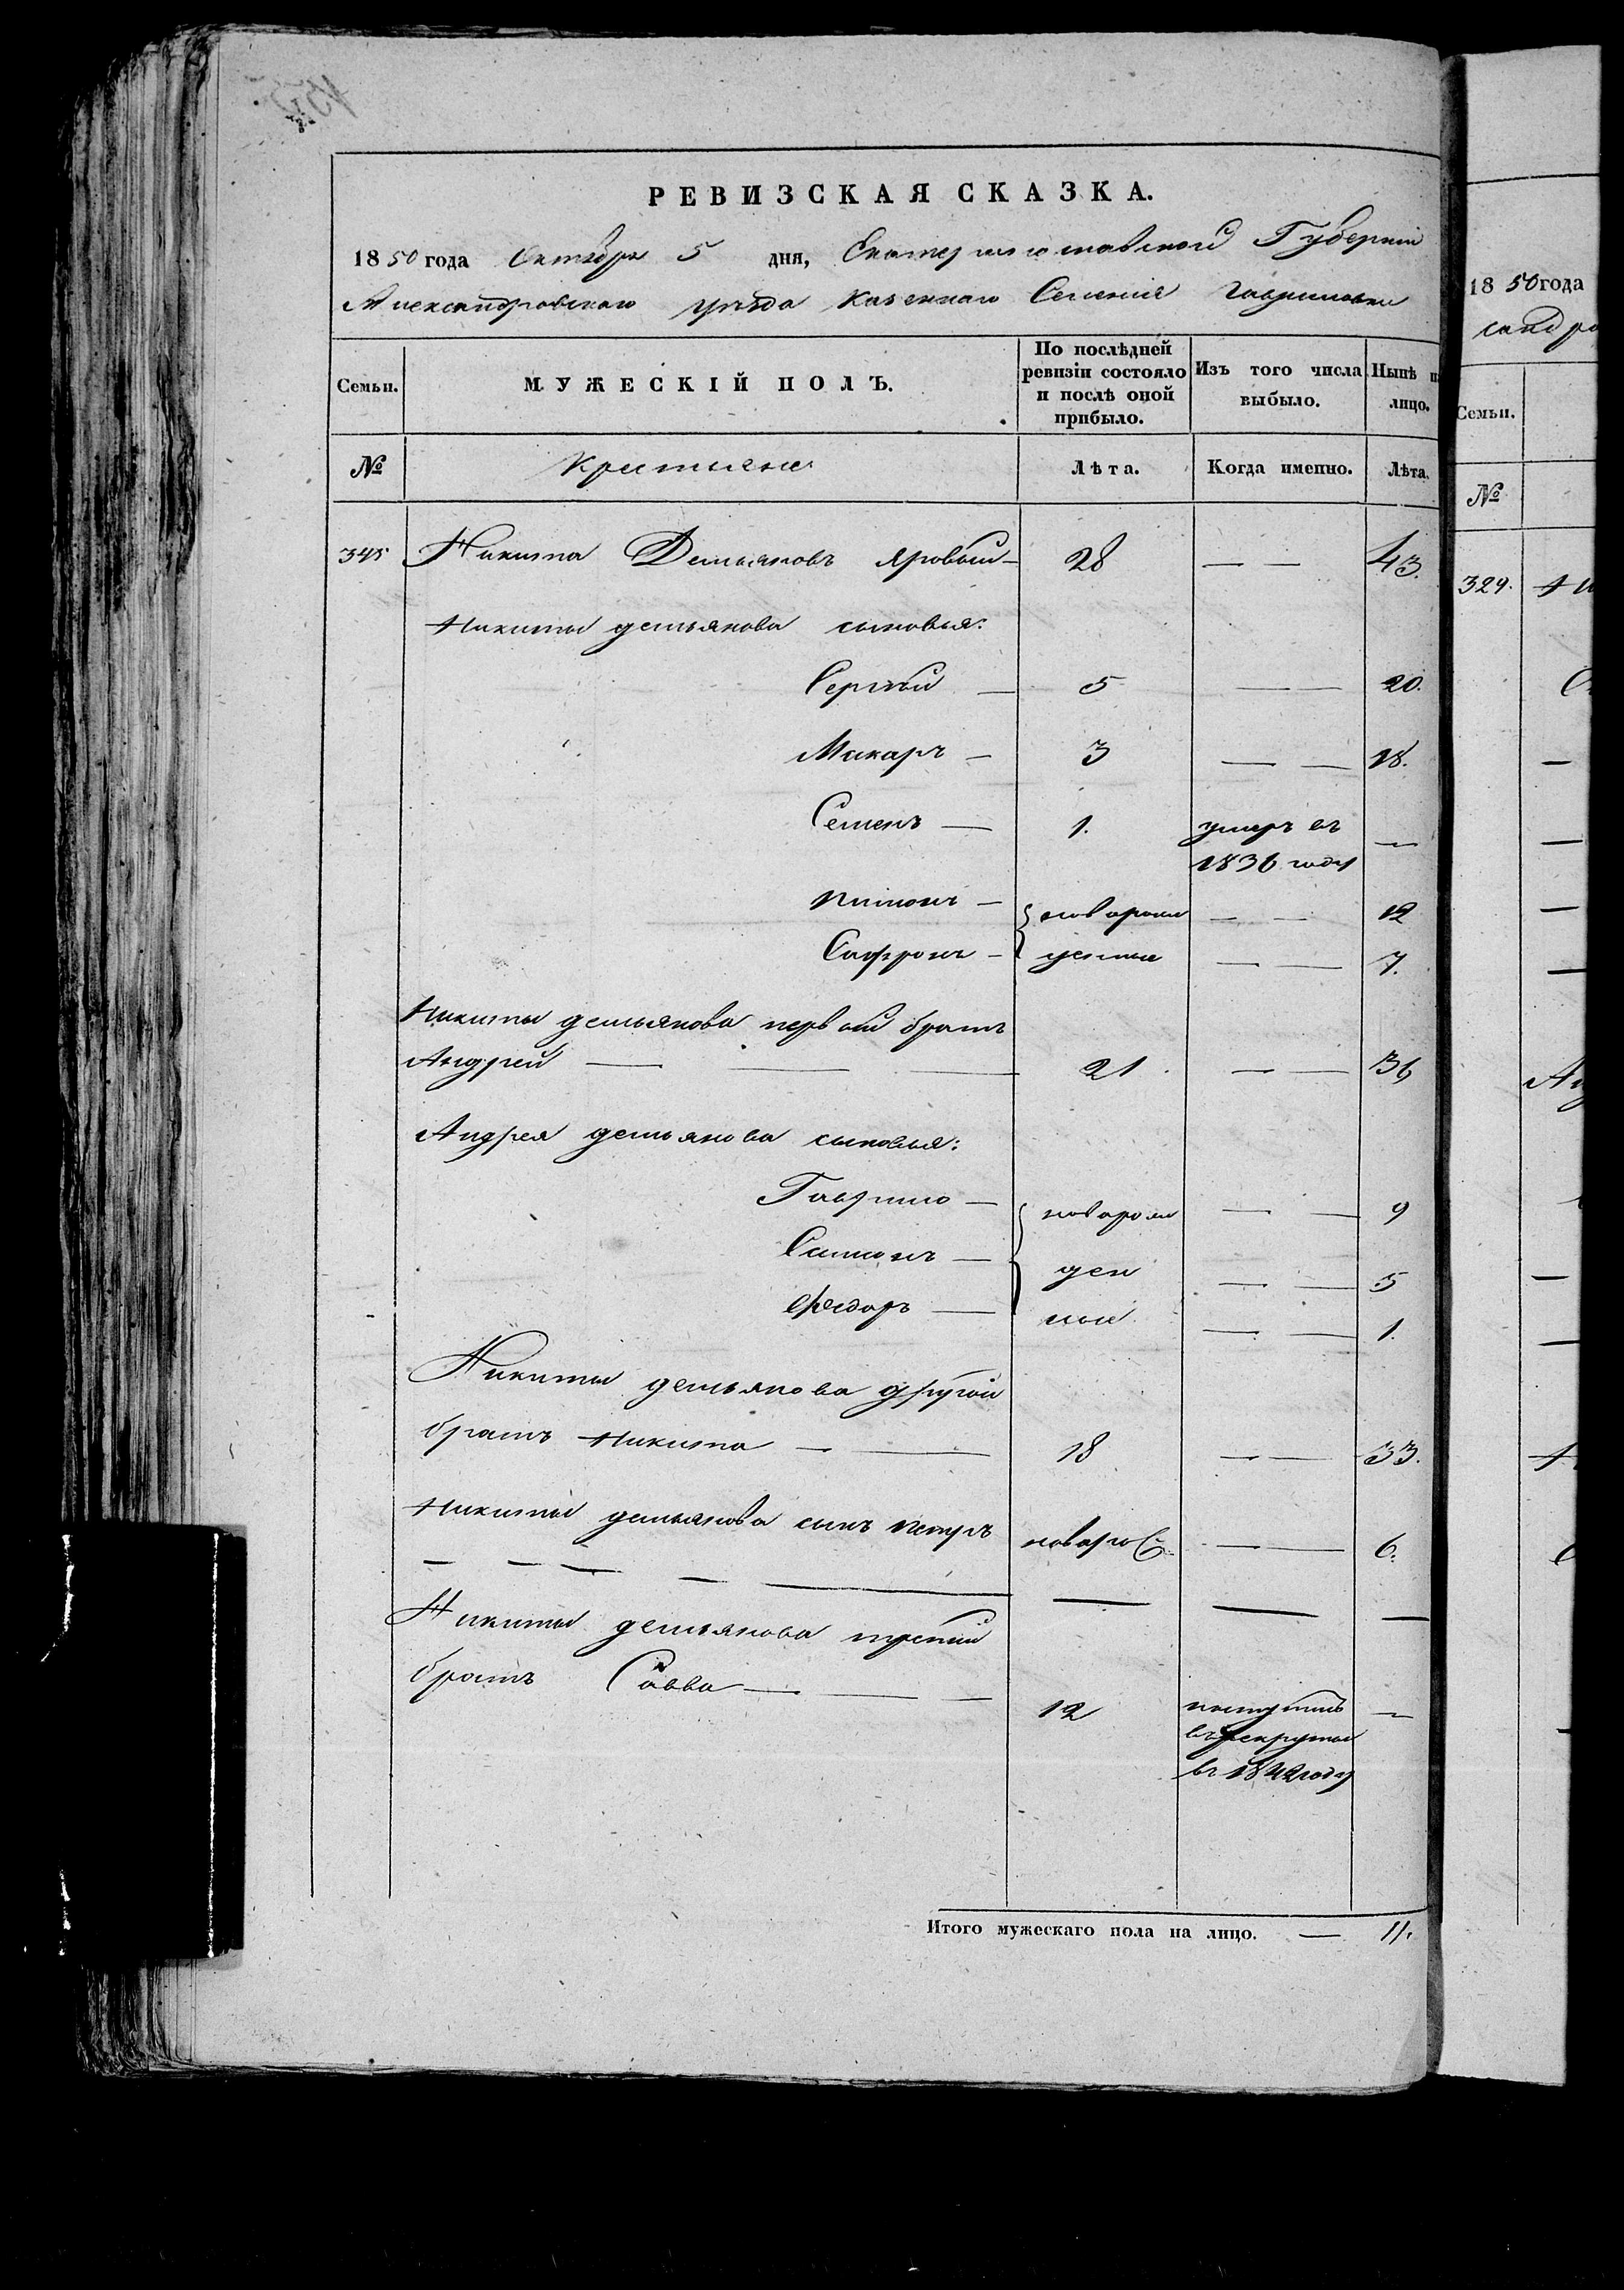 РЕВИЗСКАЯ СКАЗКА.
1850 года Октября 5 дня, Екатеринославской Губернии
Александровского уѣзда Казеннаго Селенія Гавриловки
Семьи. МУЖЕСКІЙ ПОЛЪ. По послѣдней ревизіи состояло и послѣ оной прибыло. Изъ того числа выбыло. Нынѣ н лицо.
№ Крестьяне Лѣта. Когда именно. Лѣта.
345 Никита Демьяновъ Яровый — 28 — — 43.
Никиты демьянова сыновья:
Сергѣй — 5 — — 20.
Макаръ — 3 — — 18.
Семенъ — 1. умеръ въ —
1836 году
Пимонъ — новорож — — 12
Сафронъ — денные — — 7.
Никиты демьянова первый братъ
Андрей — — — 21 — — 36
Андрея демьянова сыновья:
Гаврило — новорож — — 9
Симонъ — ден — — 5
Федоръ — ные — — 1.
Никиты демьянова другой
братъ Никита — — 18 — — 33.
Никиты демьянова сынъ Петръ новорож — — 6.
— — — — — — — —
Никиты демьянова третий
братъ Савва — — — 12 поступилъ —
въ рекруты
въ 1842 году
Итого мужескаго пола на лицо. — 11.
1850 года
санд ро
Семьи.
№
329.